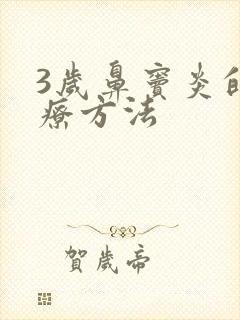 3歲鼻竇炎的
療方法
賀歲帝